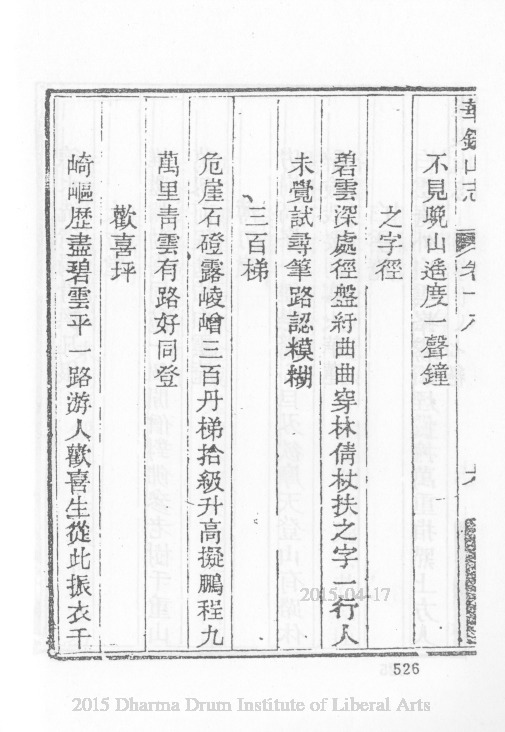 華銀山志
卷十八
六
不見晚山遙度一聲鐘
之字徑
碧雲深處徑盤紆曲曲穿林倩杖扶之字一行人
未覺試尋筆路認糢糊
三百梯
危崖石磴露崚嶒三百丹梯拾級升高擬鵬程九
萬里靑雲有路好同登
歡喜坪
崎嶇歷盡碧雲平一路游人歡喜生從此振衣千
2015-04-17
526
2015 Dharma Drum Institute of Liberal Arts